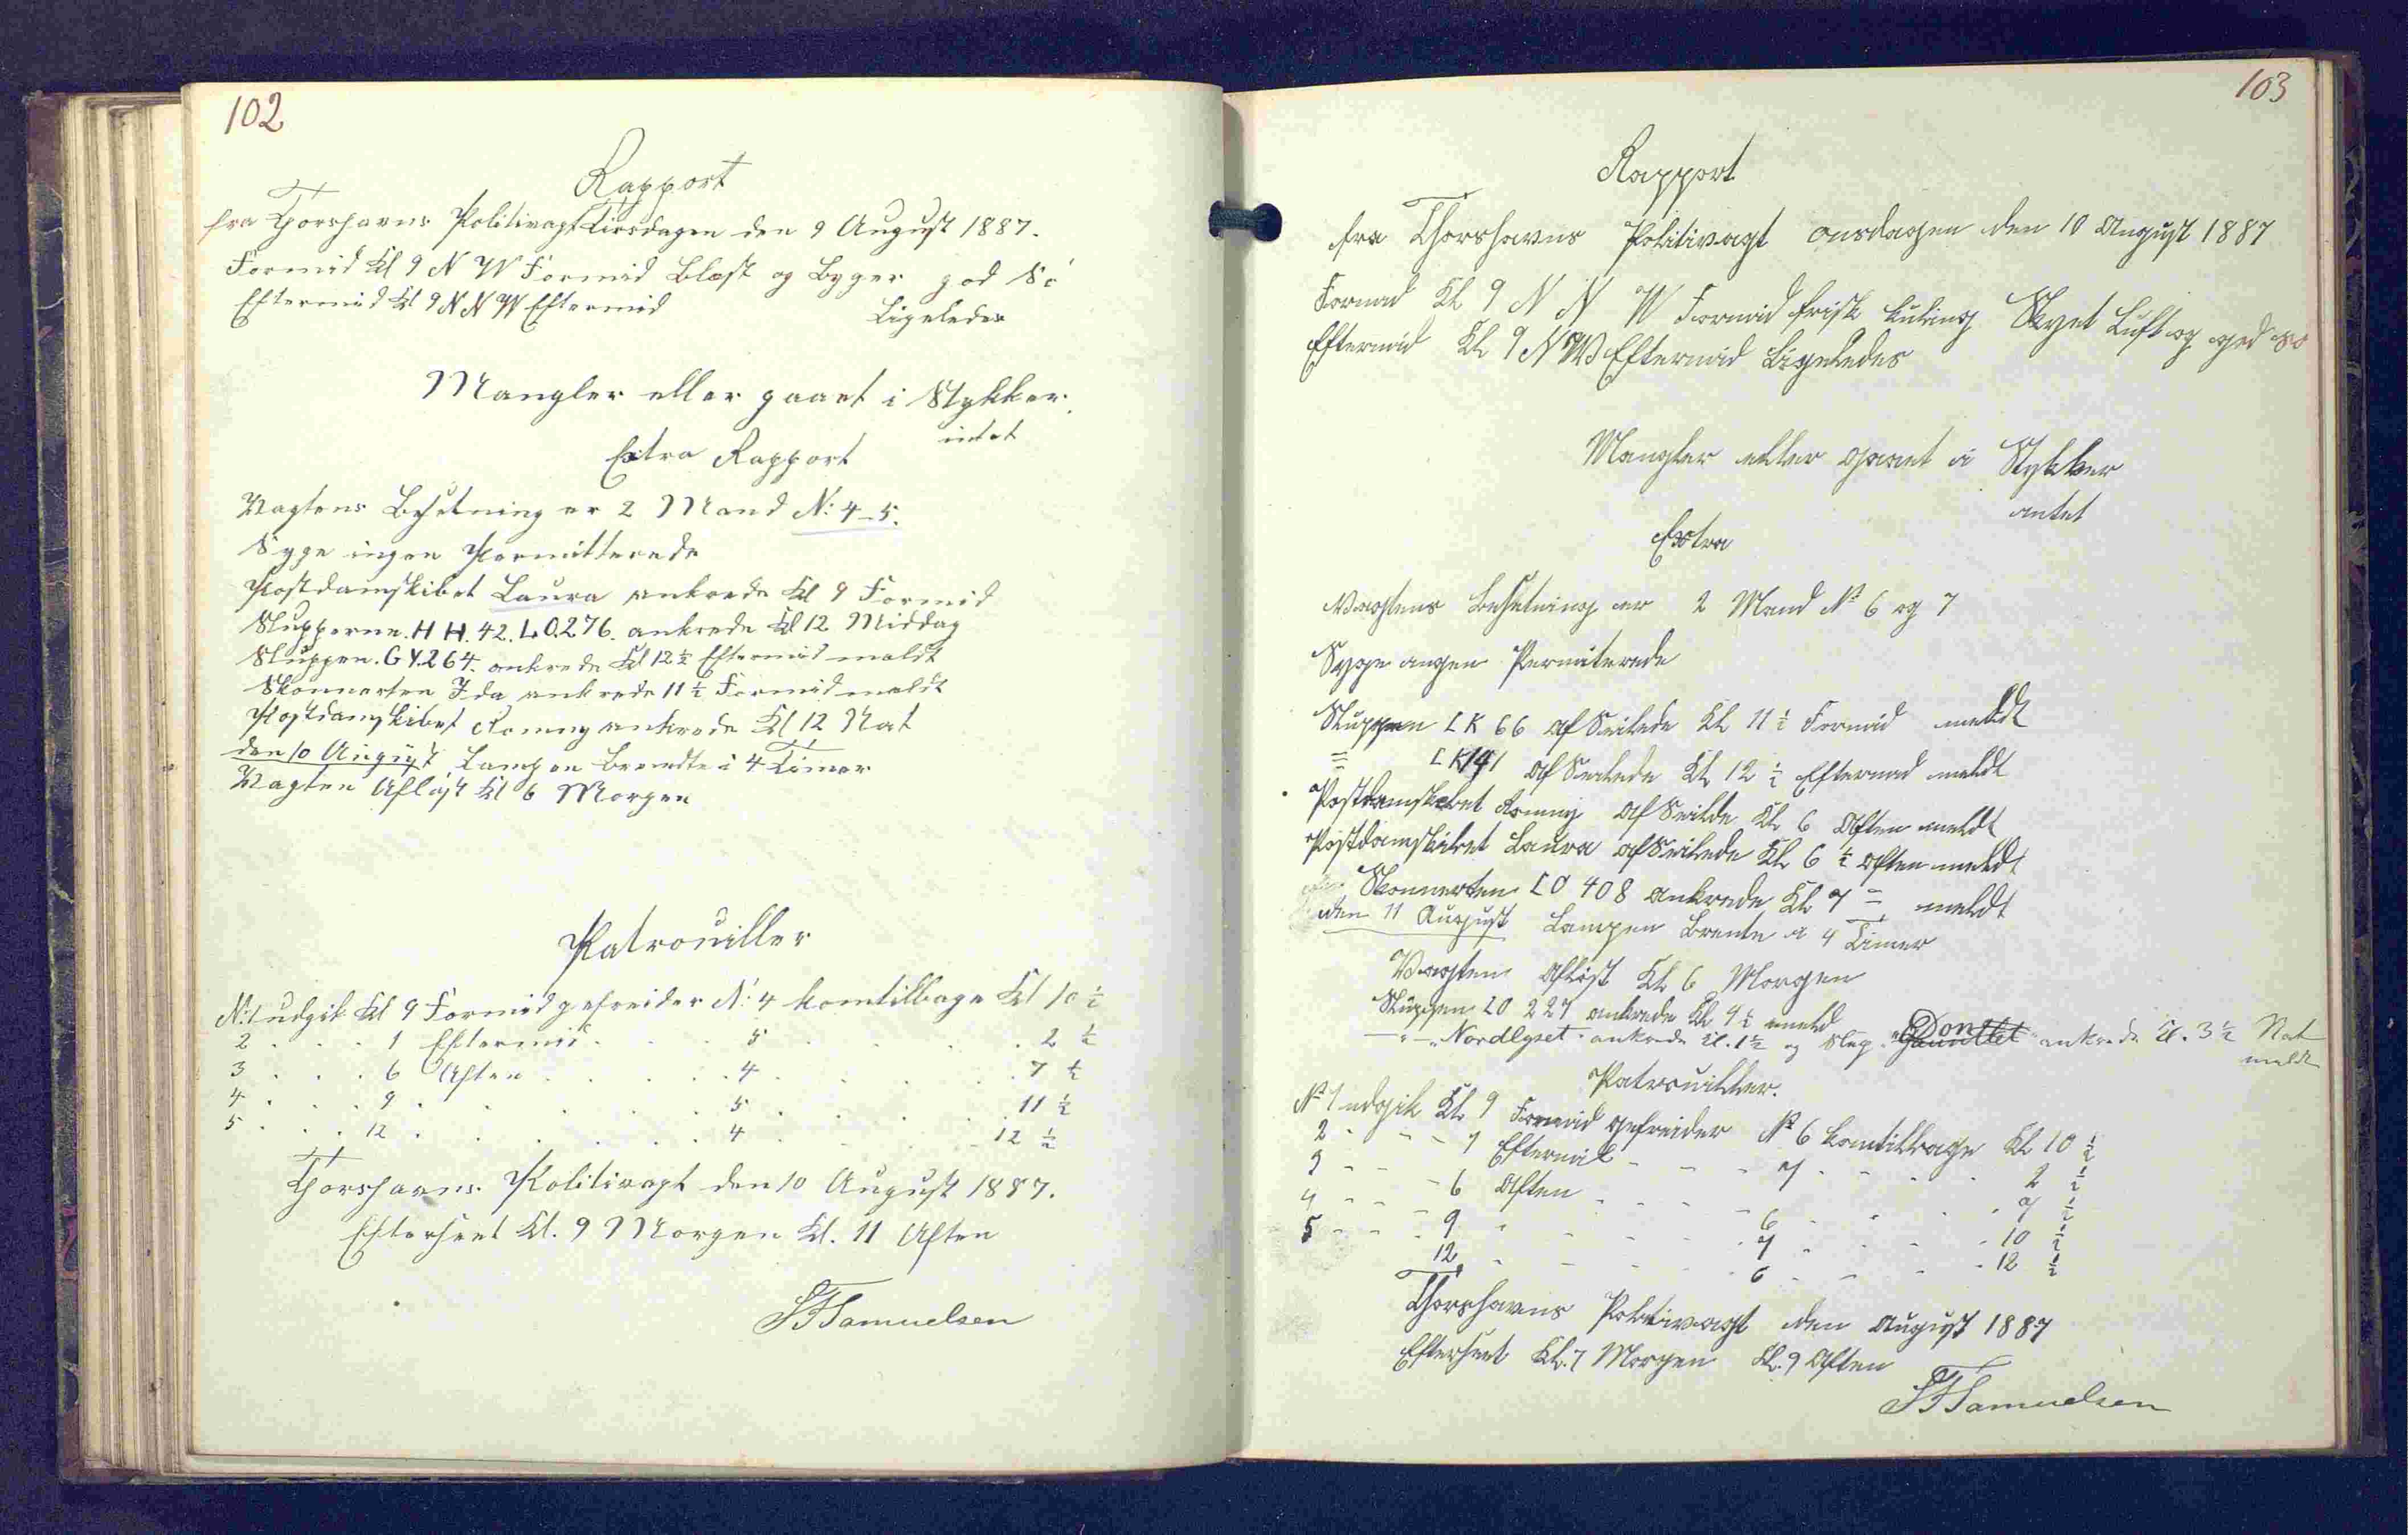 102
Rapport
fra Thorshavns Politivagt Tirsdagen den 9 August 1887.
Formid Kl 9 N W Formid Blæst og Byger god Sö
Eftermid Kl 9 N N W Eftermid Ligeledes
Mangler eller gaaet i Stykker.
intet
Extra Rapport
Vagtens Besetning er 2 Mand N: 4-5.
Syge ingen Permitterede
Postdamskibet Laura ankrede Kl 9 Formid
Slupperne. H H. 42. LO. 276. ankrede Kl 12 Middag
Sluppen. G Y. 264. ankrede Kl 12 ½ Eftermid meldt
Skonnerten Ida ankrede 11 ½ Formid meldt
Postdamskibet Romny ankrede Kl 12 Nat
den 10 August Lampen Brendte i 4 Timer
Vagten Afløst Kl 6 Morgen
Patrouiller
N: 1 udgik Kl 9 Formid gefreider N: 4 komtilbage Kl 10 ½
2 . . . 1 Eftermid . . . 5 . . . . 2 ½
3 . . . 6 Aften . . . . 4 . . . . 7 ½
4 . . . 9 . . . . . 5 . . . . 11 ½
5 . . . 12 . . . . . 4 . . . . 12 ½
Thorshavns Politivagt den 10 August 1887.
Efterseet Kl. 9 Morgen Kl. 11 Aften
Samuelsen
103
Rapport
fra Thorshavns Politivagt onsdagen den 10 August 1887
Formid Kl 9 N N W Formid frisk kuling Skyet Luft og god sö
Eftermid Kl 9 N W Eftermid Ligeledes
Mangler eller gaaet i Stykker
intet
Extra
Vagtens Besetning er 2 Mand No 6 og 7
Syge ingen Permiterede
Sluppen LK 66 af Seilede Kl 11 ½ Formid meldt
= LK 141 af Seilede Kl 12 ½ Eftermid meldt
Postdamskibet Romny af Seilde Kl 6 Aften meldt
Postdamskibet Laura af Seilede Kl 6 ½ Aften meldt
Skonnerten LO 408 ankrede Kl 7 = meldt
den 11 August Lampen Brente i 4 Timer
Vagten Afløst Kl 6 Morgen
Sluppen LO 227 ankrede Kl. 9 ½ meld
— " — "Nordlyset" ankrede Kl. 1 ½ og Slup. ankrede Kl. 3 ½ Nat
meldt
Patrouiller.
No 1 udgik Kl 9 Formid gefreider No 6 komtilbage Kl 10 ½
2 - - - 1 Eftermid - - - 7 - - - 2 ½
3 - - - 6 Aften - - - 6 - - - 7 ½
4 - - - 9 - - - - 7 - - - 10 ½
5 - - - 12 - - - - 6 - - - 12 ½
Thorshavns Politivagt den August 1887
Efterseet Kl. 7 Morgen Kl. 9 Aften
Samuelsen